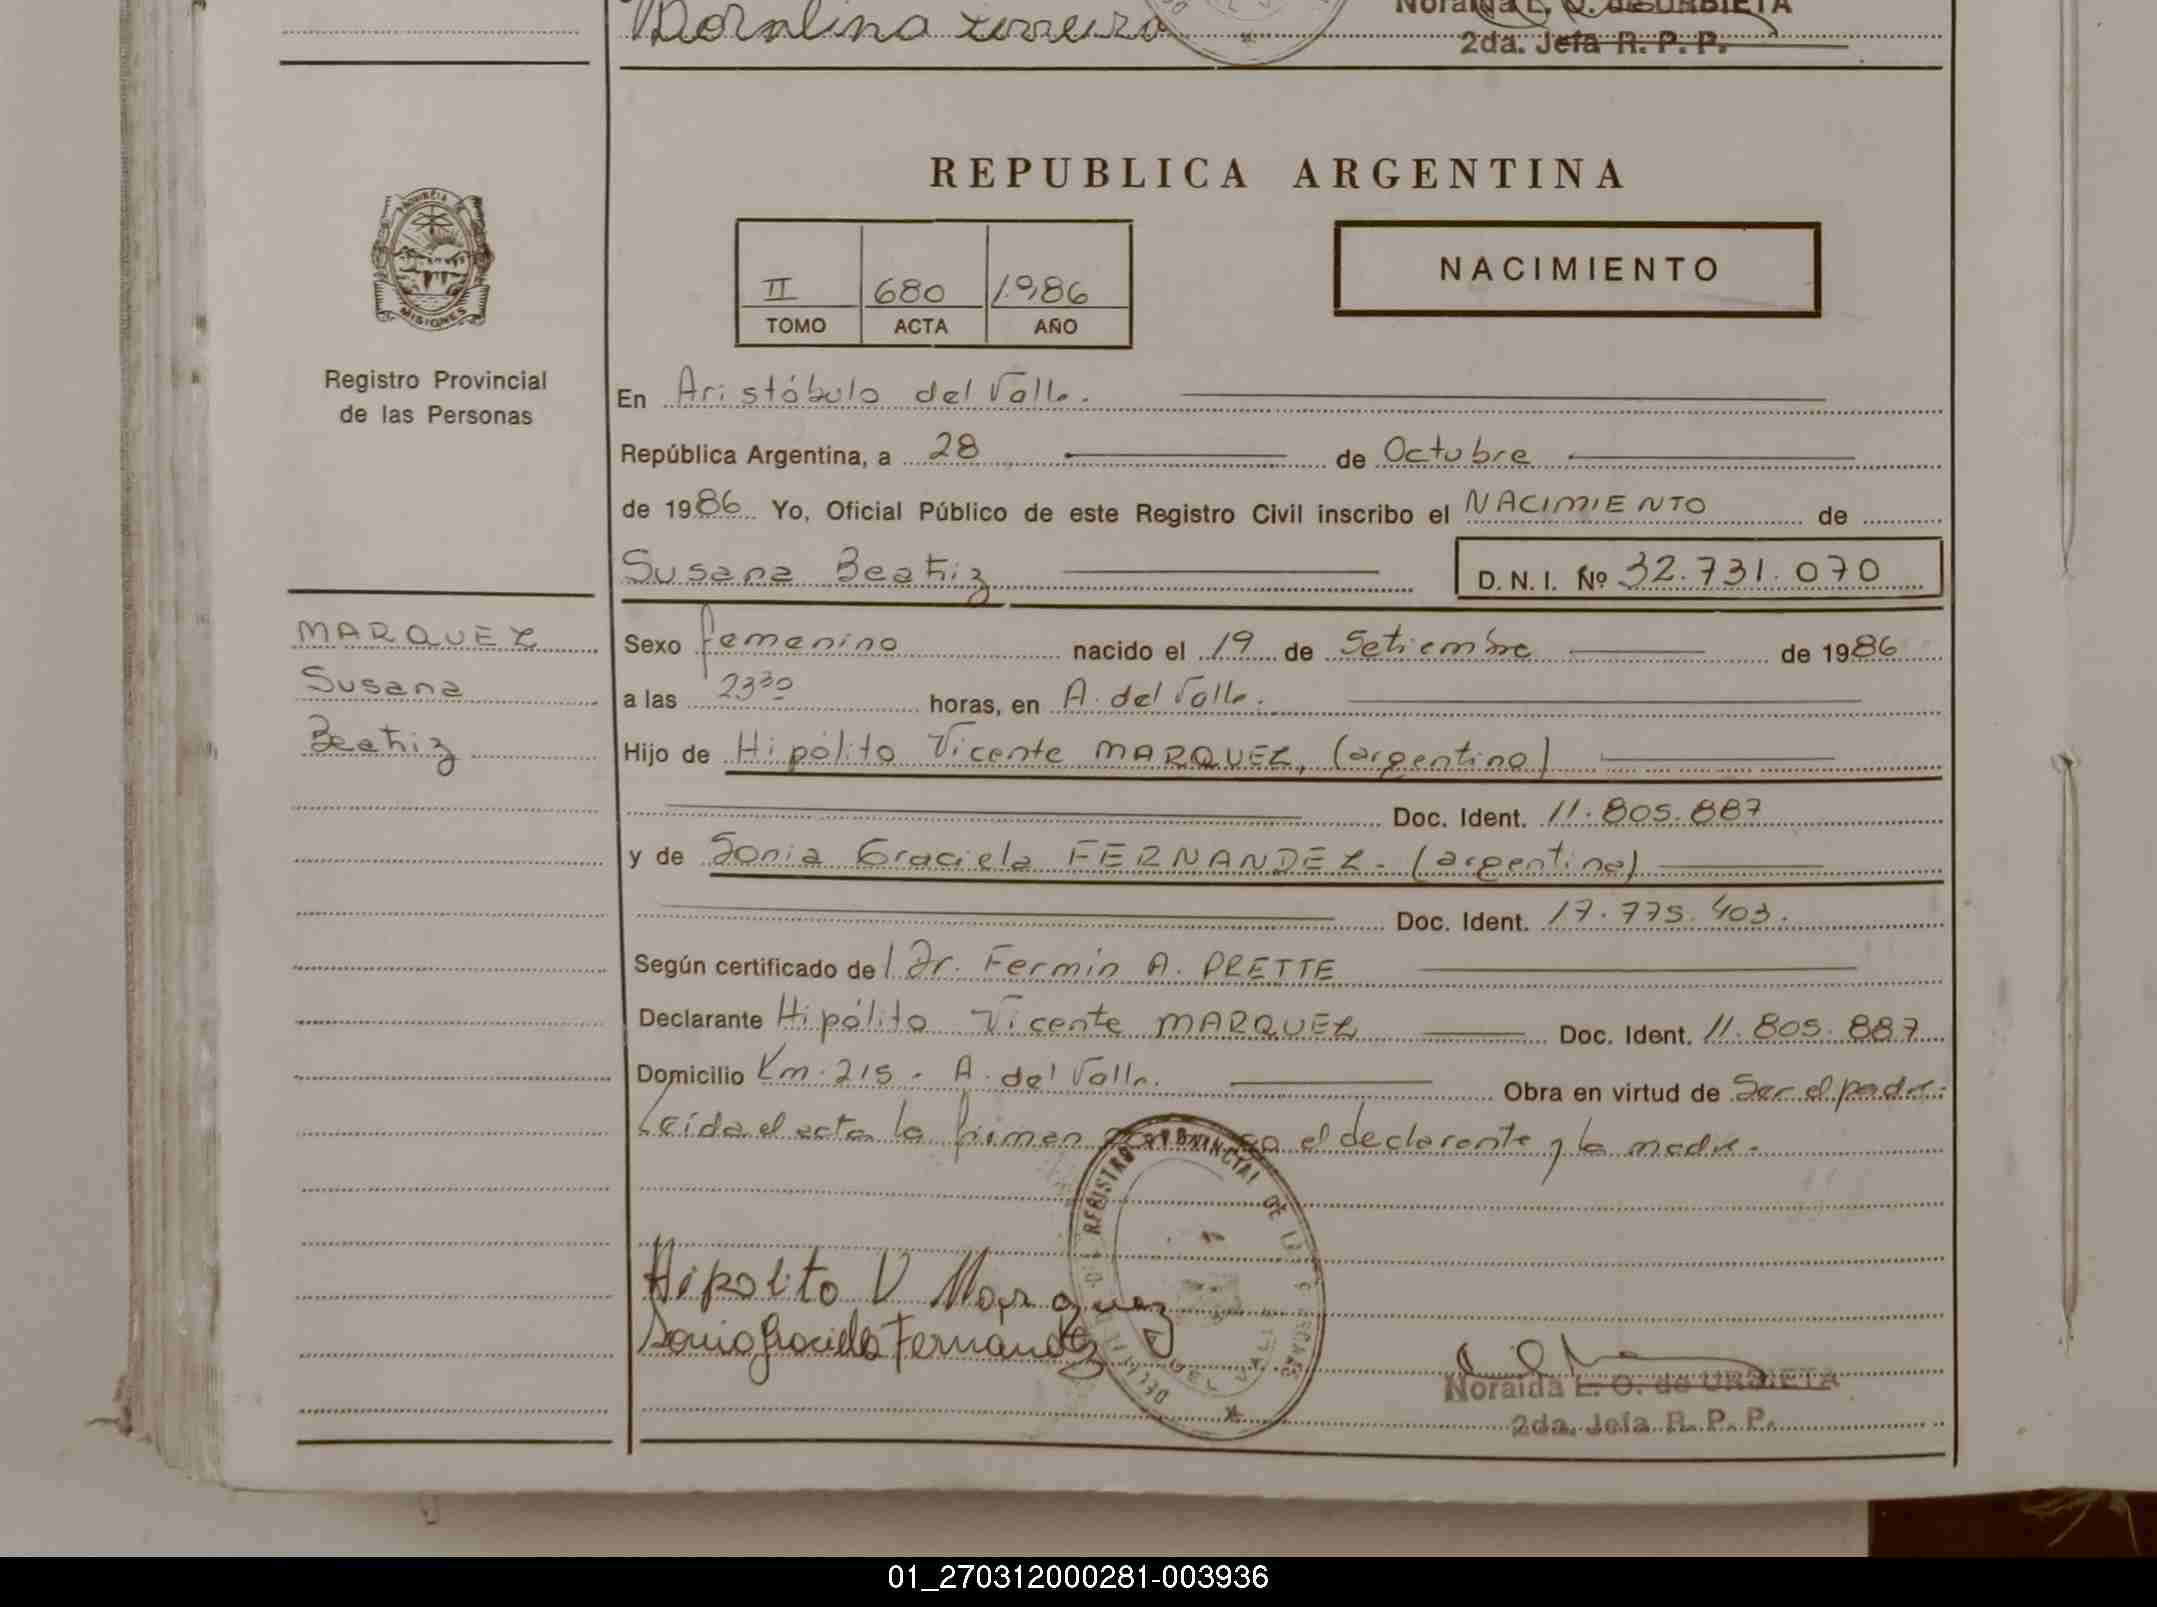 Doralina Ferreira
Noraida L. O. de URBIETA
2da. Jefa R. P. P.
PROVINCIA DE
MISIONES
Registro Provincial
de las Personas
REPUBLICA ARGENTINA
II 680 1986
TOMO ACTA AÑO
NACIMIENTO
En Aristóbulo del Valle.
República Argentina, a 28 de Octubre
de 1986 Yo, Oficial Público de este Registro Civil inscribo el NACIMIENTO de
Susana Beatriz D. N. I. Nº 32.731.070
MARQUEZ
Susana
Beatriz
Sexo femenino nacido el 19 de Setiembre de 1986
a las 23³⁰ horas, en A. del Valle.
Hijo de Hipólito Vicente MARQUEZ, (argentino)
Doc. Ident. 11.805.887
y de Sonia Graciela FERNANDEZ - (argentina)
Doc. Ident. 17.775.403.
Según certificado del Dr. Fermín A. PRETTE
Declarante Hipólito Vicente MARQUEZ Doc. Ident. 11.805.887
Domicilio Km. 215 - A. del Valle. Obra en virtud de Ser el padre.
Leída el acta la firman el declarante y la madre.
REGISTRO PROVINCIAL DE
Hipolito V Marquez
Sonia Graciela Fernandez
Noraida L. O. de URBIETA
2da. Jefa R. P. P.
01_270312000281-003936